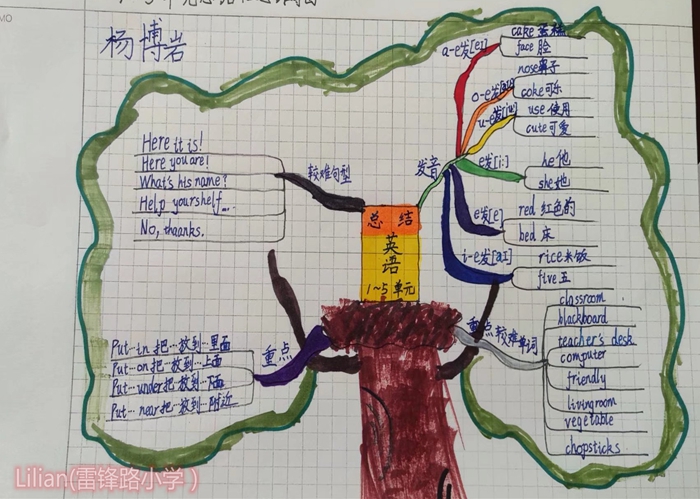 杨博岩
总结
英语
1~5单元
较难句型
Here it is!
Here you are!
What's his name?
Help yourshelf...
No, thaanks.
重点
Put...in 把...放到...里面
Put...on 把...放到...上面
Put...under 把...放到...下面
Put...near 把...放到...附近
发音
a-e发[eɪ]
cake 蛋糕
face 脸
o-e发
nose 鼻子
coke 可乐
u-e发
use 使用
cute 可爱
e发[i:]
he 他
she 她
e发[e]
red 红色的
bed 床
i-e发[aɪ]
rice 米饭
five 五
重点较难单词
classroom
blackboard
teacher's desk
computer
friendly
livingroom
vegetable
chopsticks
Lilian(雷锋路小学)